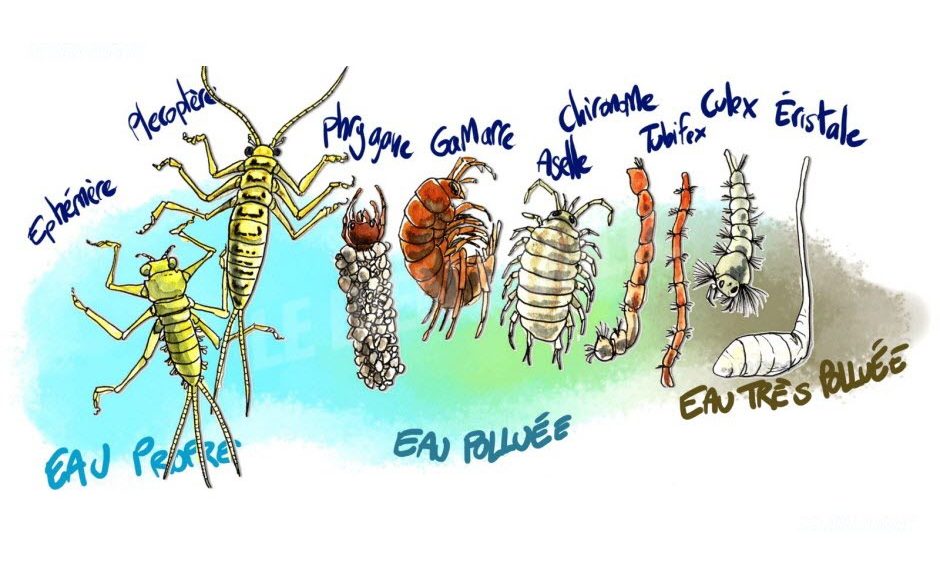 Ephémère
Pleroptère
Phrygane
GaMarre
Aselle
Chironome
Tubifex
Culex
Éristale
EAU PROPRE
EAU POLLUÉE
EAU TRÈS POLLUÉE